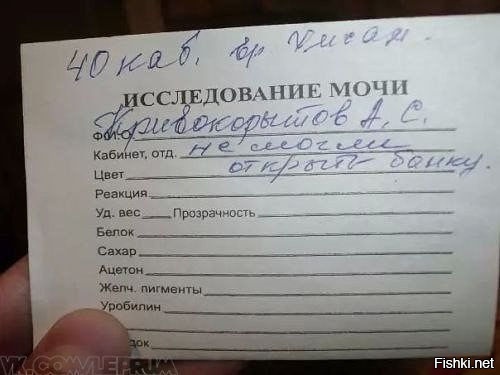 40 каб. вр Чигам.
ИССЛЕДОВАНИЕ МОЧИ
Ф.И.О. Кривокорытов А. С.
Кабинет, отд. не смогли
Цвет открыть банку.
Реакция
Уд. вес Прозрачность
Белок
Сахар
Ацетон
Желч. пигменты
Уробилин
док
VK.COM/LEPRUM
Fishki.net